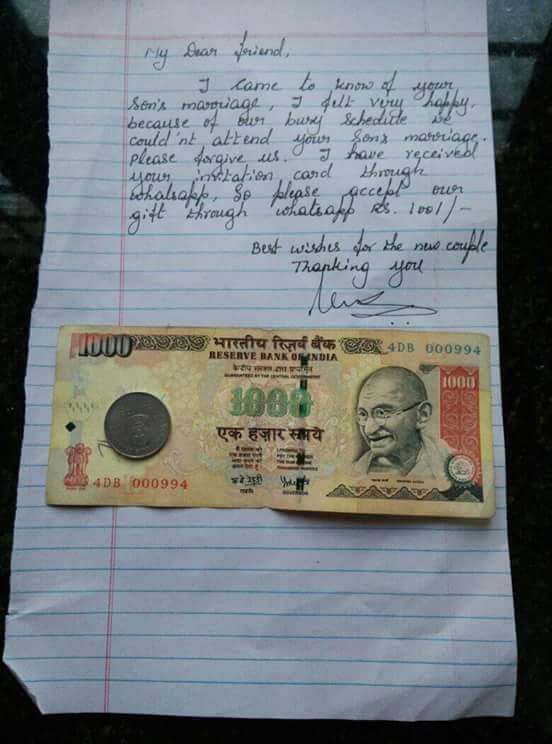 My Dear friend,
I came to know of your
son's marriage, I felt very happy.
because of our busy schedule we
could'nt attend your son's marriage.
please forgive us. I have received
your invitation card through
whatsapp, So please accept our
gift through whatsapp Rs. 1001/-
Best wishes for the new couple
Thanking you
1000 भारतीय रिज़र्व बैंक 4DB 000994
RESERVE BANK OF INDIA
केन्द्रीय सरकार द्वारा प्रत्याभूत
GUARANTEED BY THE CENTRAL GOVERNMENT
1000
1000
एक हज़ार रुपये
4DB 000994